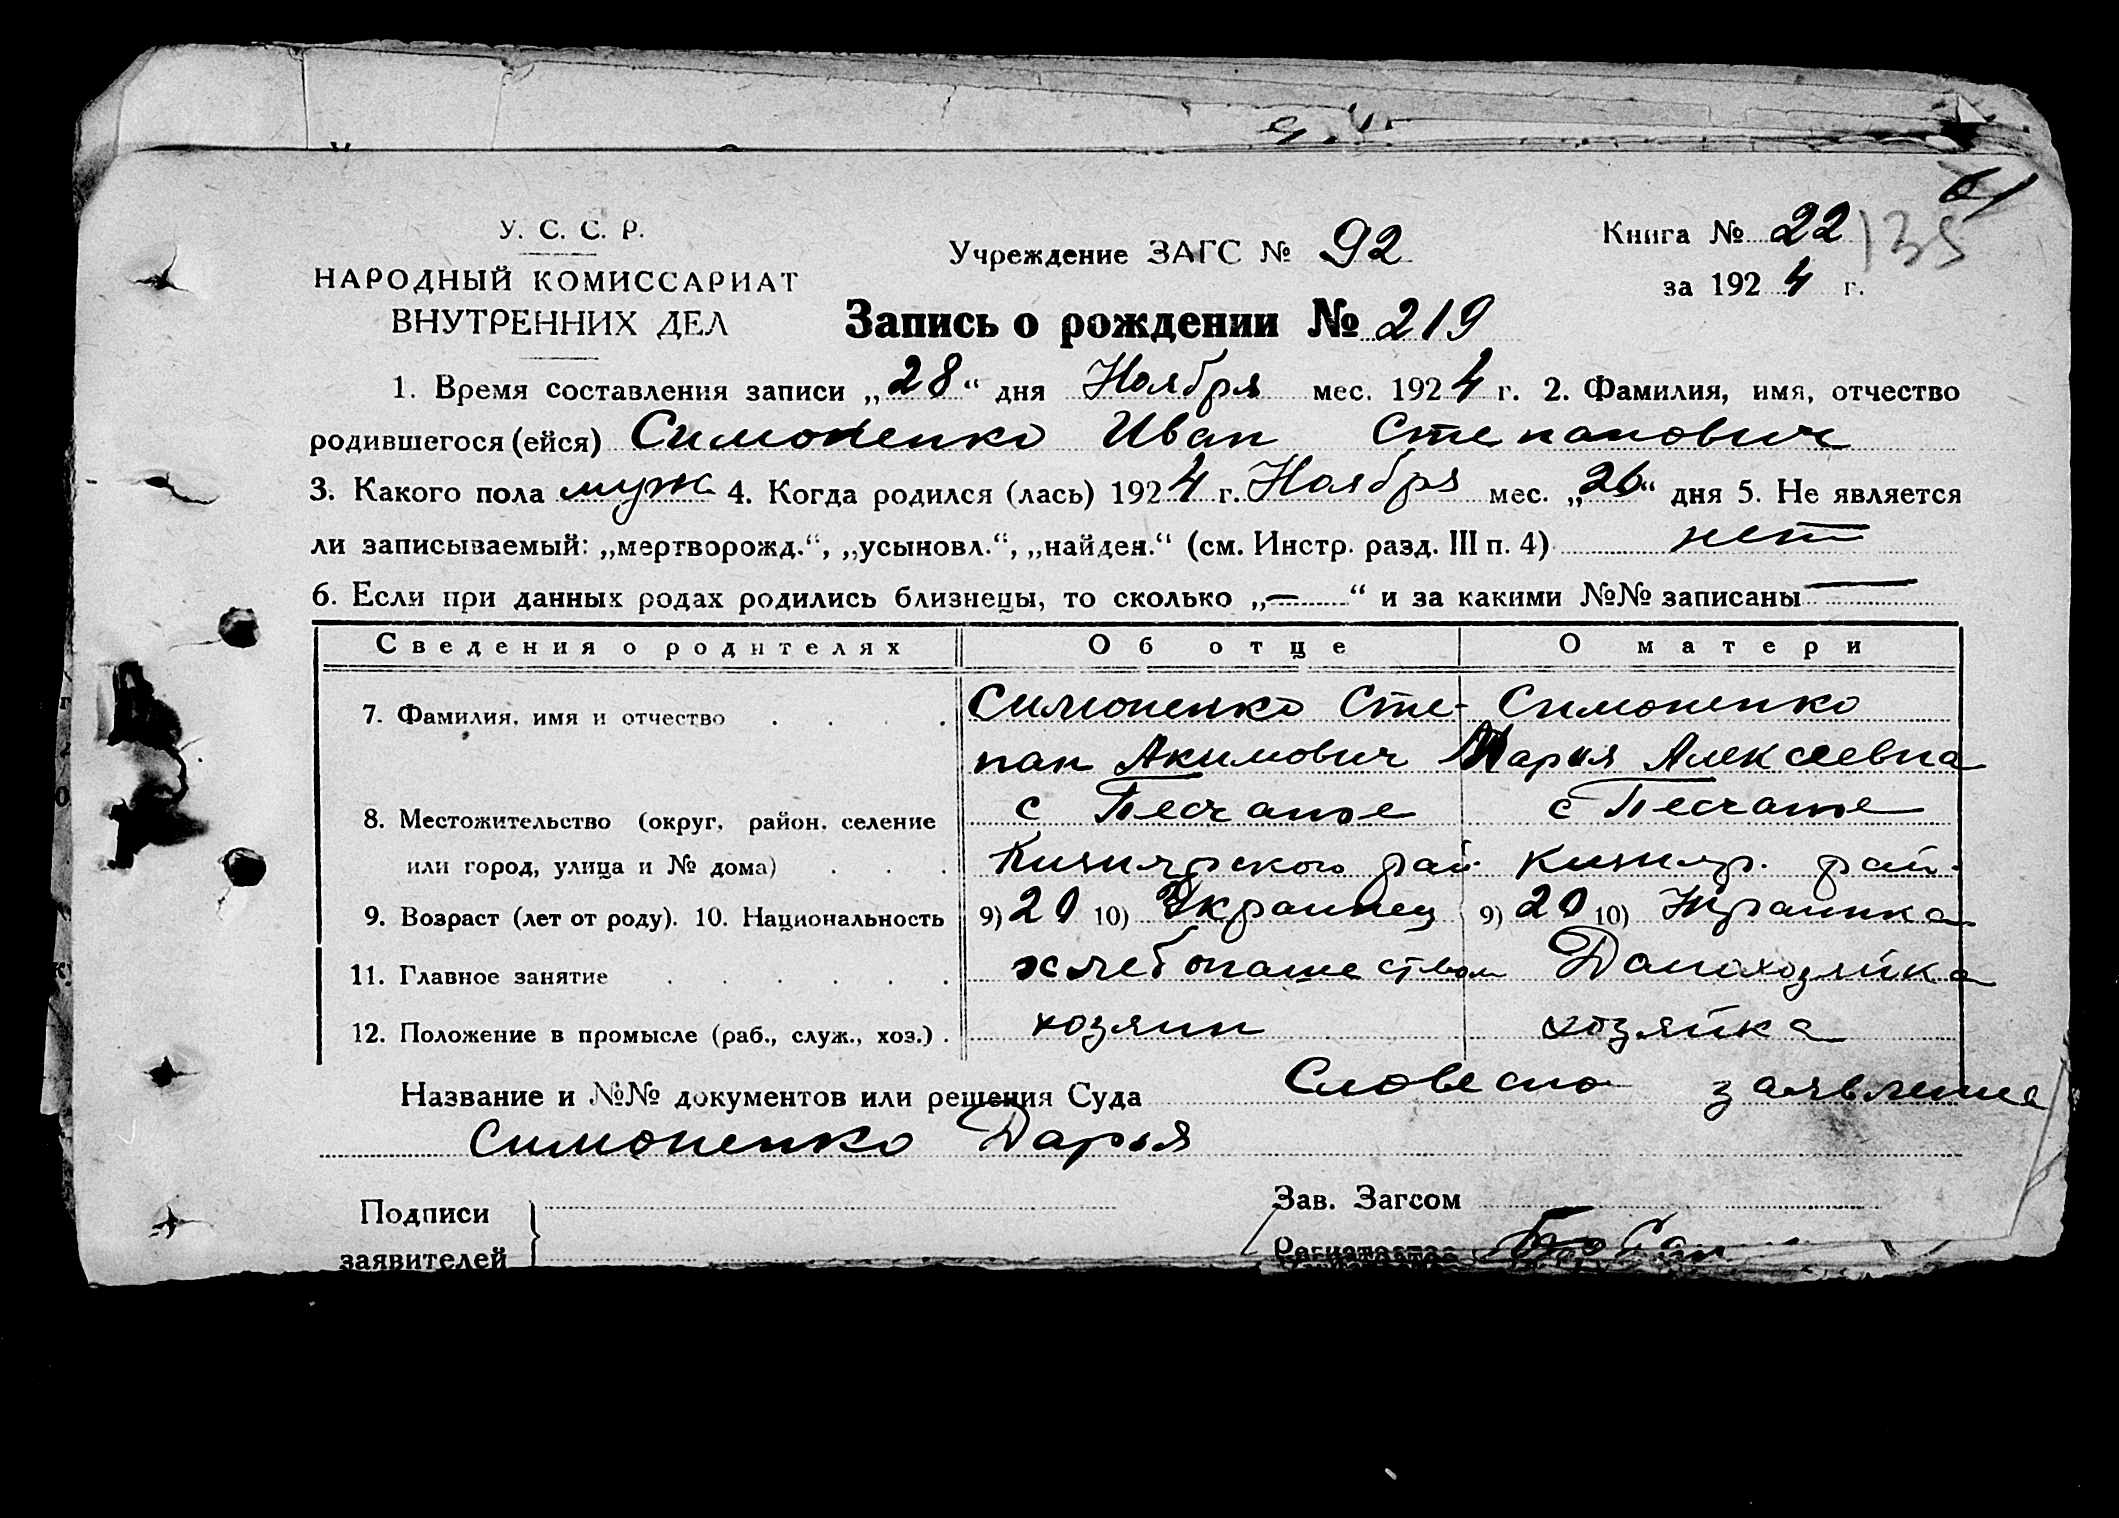 61
У. С. С. Р.
НАРОДНЫЙ КОМИССАРИАТ
ВНУТРЕННИХ ДЕЛ
Учреждение ЗАГС № 92
Книга № 22 135
за 1924 г.
Запись о рождении № 219
1. Время составления записи „28“ дня Ноября мес. 1924 г. 2. Фамилия, имя, отчество
родившегося (ейся) Симоненко Иван Степанович
3. Какого пола муж 4. Когда родился (лась) 1924 г. Ноября мес. „26“ дня 5. Не является
ли записываемый: „мертворожд.“, „усыновл.“, „найден.“ (см. Инстр. разд. III п. 4) нет
6. Если при данных родах родились близнецы, то сколько „—“ и за какими №№ записаны —
Сведения о родителях Об отце О матери
7. Фамилия, имя и отчество Симоненко Сте- Симоненко
пан Акимович Марья Алексеевна
8. Местожительство (округ, район, селение с Песчаное с Песчаное
или город, улица и № дома) рай рай.
9. Возраст (лет от роду). 10. Национальность 9) 20 10) Украинец 9) 20 10) Украинка
11. Главное занятие хлебопашеством Домохозяйка
12. Положение в промысле (раб., служ., хоз.) хозяин хозяйка
Название и №№ документов или решения Суда Словесно заявление
Симоненко Дарья
Подписи
заявителей
Зав. Загсом